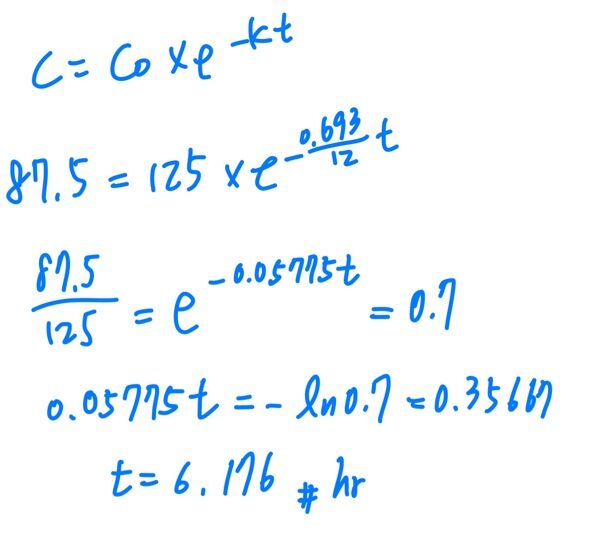 C = C₀ × e^(-kt)
87.5 = 125 × e^(-(0.693/12)t)
87.5/125 = e^(-0.05775t) = 0.7
0.05775t = - ln0.7 = 0.35667
t = 6.176 # hr